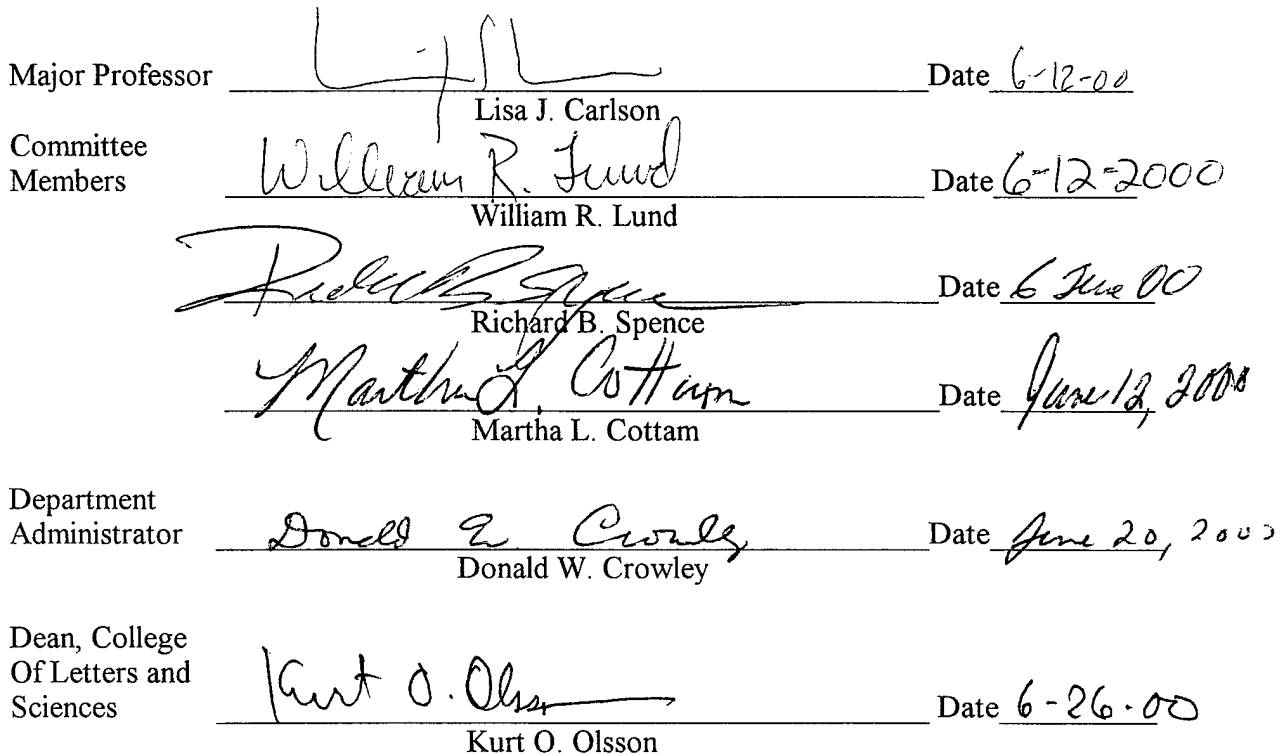 Major Professor Date 6-12-00
Lisa J. Carlson
Committee
Members William R. Lund Date 6-12-2000
William R. Lund
Date 6 June 00
Richard B. Spence
Martha L. Cottam Date June 12, 2000
Martha L. Cottam
Department
Administrator Donald W Crowley Date June 20, 2000
Donald W. Crowley
Dean, College
Of Letters and
Sciences Kurt O. Olsson Date 6-26-00
Kurt O. Olsson